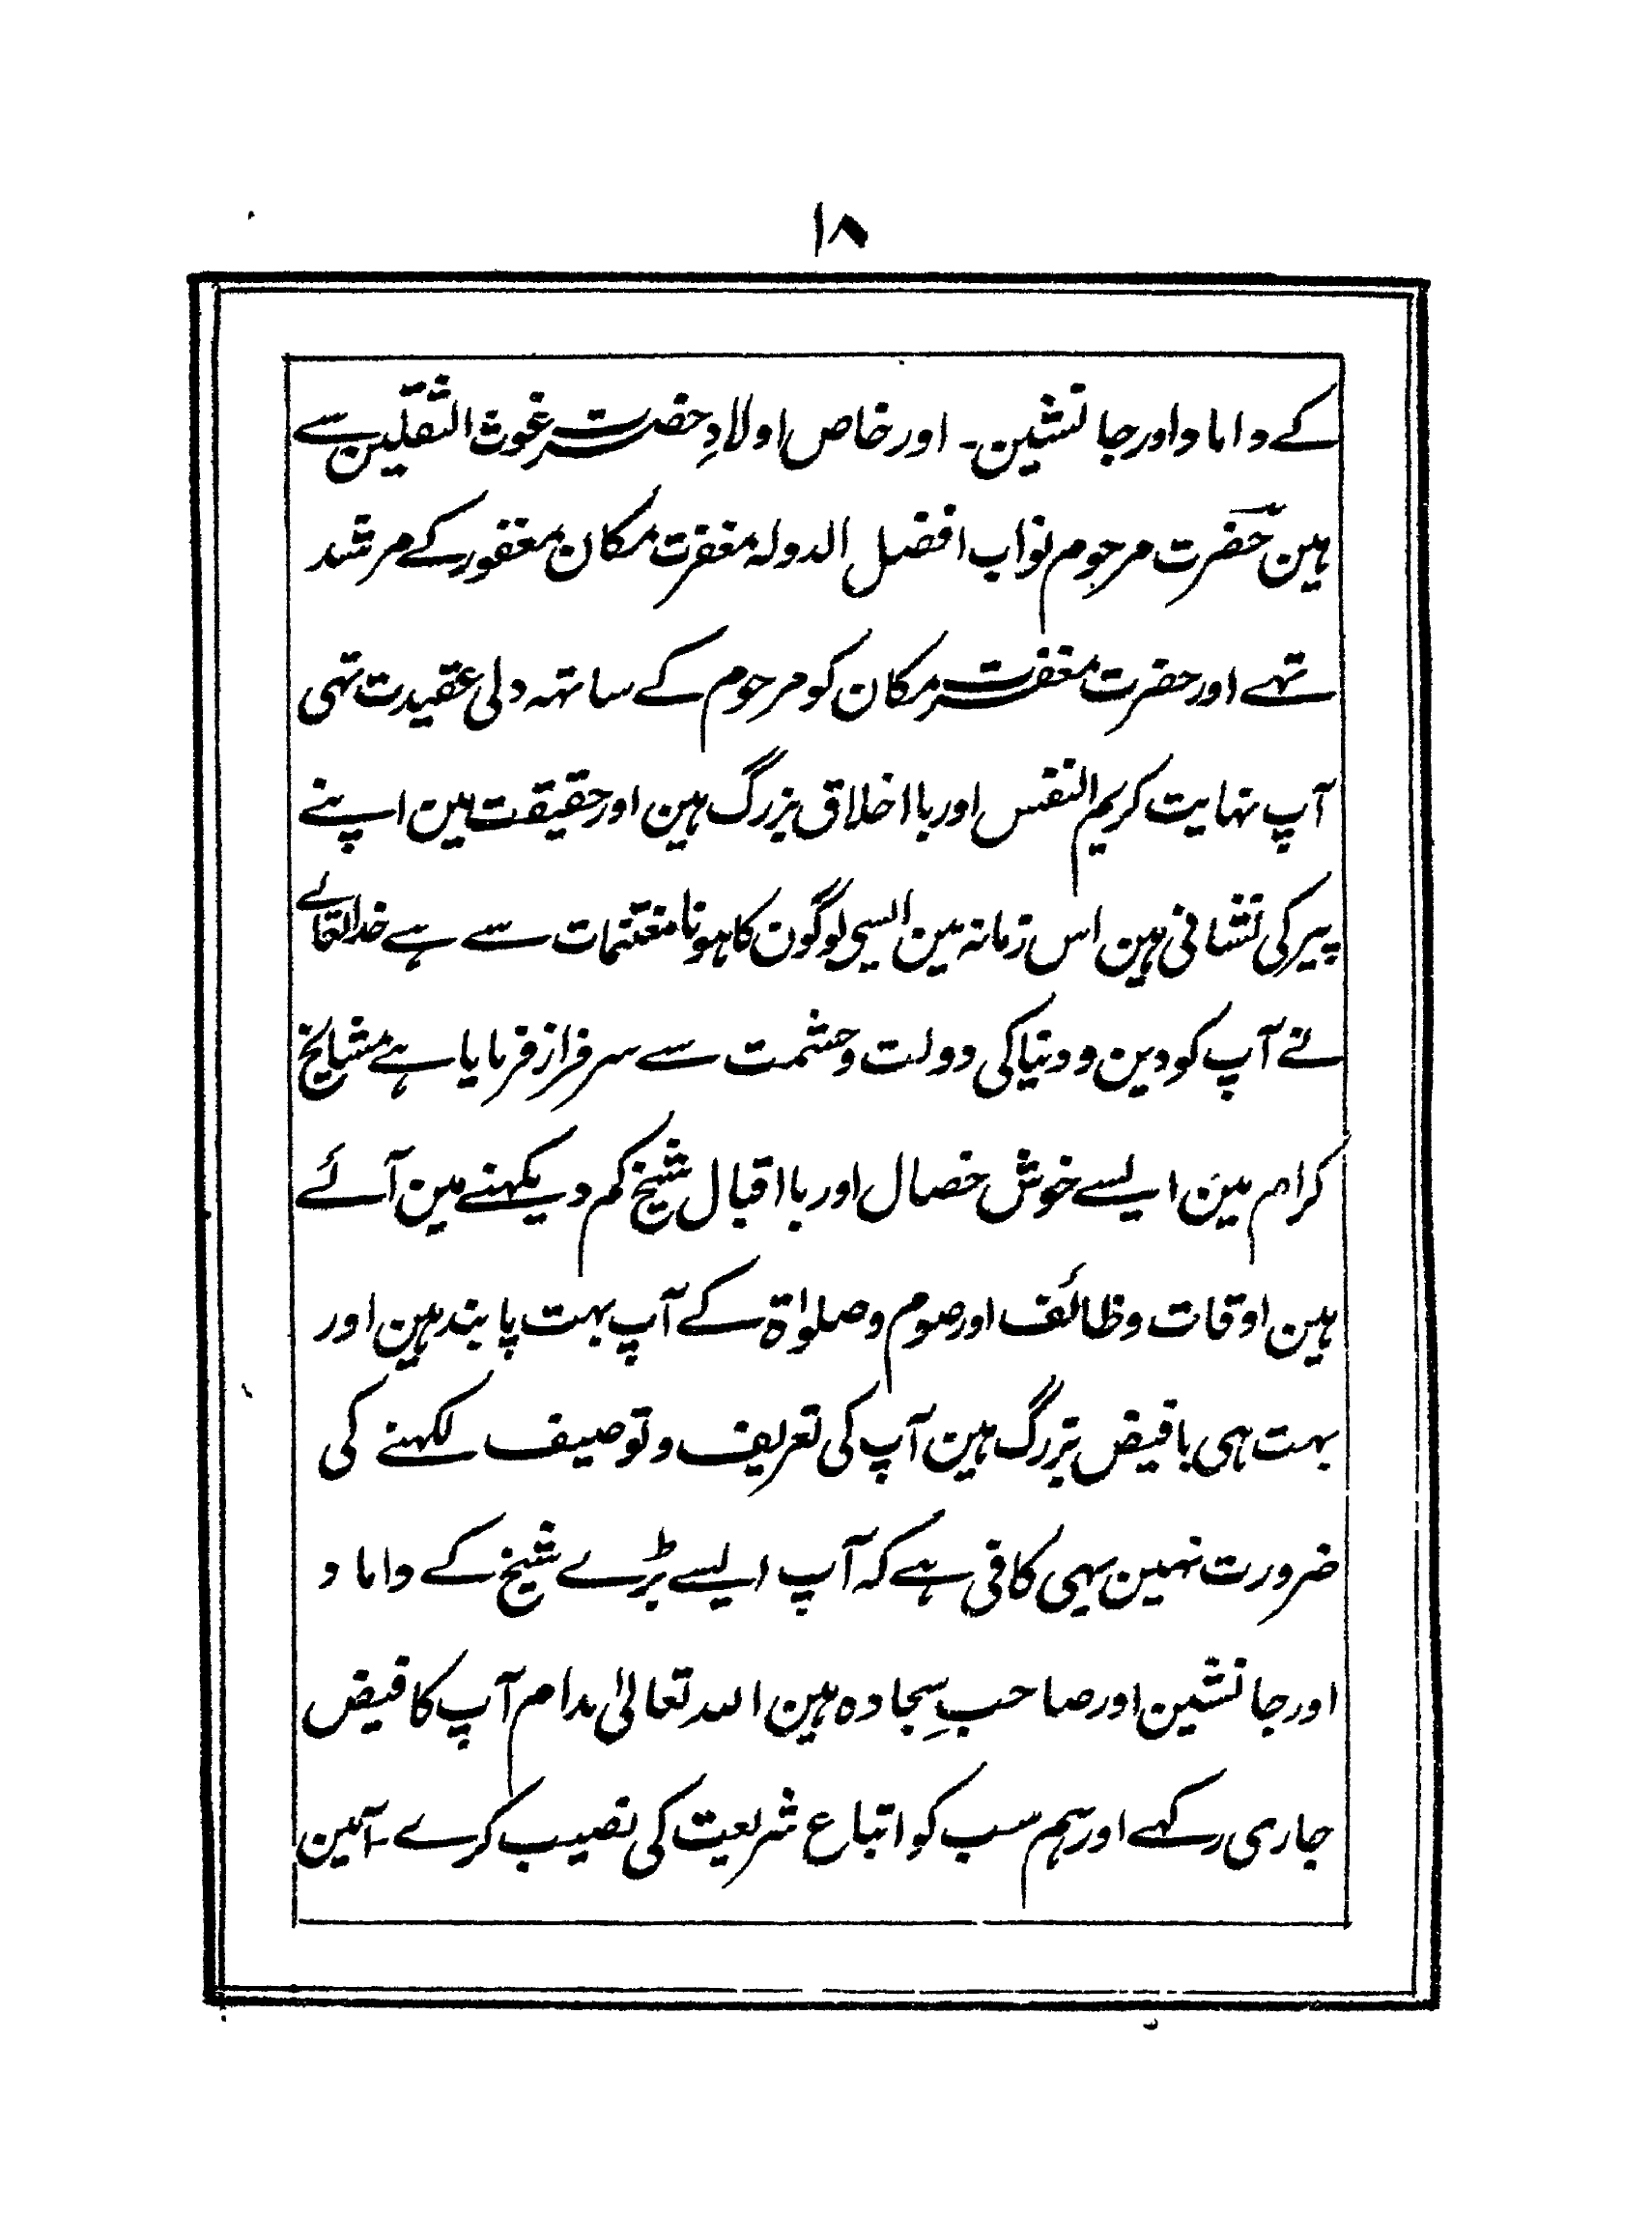 ۱۸
کے داماد اور جانشین۔ اور خاص اولادِ حضرت غوث الثقلین سے
ہین حضرت مرحوم نواب افضل الدولہ مغفرت مکان مغفور کے مرشد
تہے اور حضرت مغفرت مکان کو مرحوم کے ساتہہ دلی عقیدت تہی
آپ نہایت کریم النفس اور با اخلاق بزرگ ہین اور حقیقت مین اپنے
پیر کی نشانی ہین اس زمانہ مین ایسی لوگون کا ہونا مغتنمات سے ہے خدا تعالے
نے آپ کو دین و دنیا کی دولت وحشمت سے سرفراز فرمایا ہے مشایخ
کرام مین ایسے خوش خصال اور با اقبال شیخ کم دیکہنے مین آئے
ہین اوقات وظائف اور صوم وصلوٰۃ کے آپ بہت پابند ہین اور
بہت ہی بافیض بزرگ ہین آپ کی تعریف و توصیف لکہنے کی
ضرورت نہین یہی کافی ہے کہ آپ ایسے بڑے شیخ کے داماد و
اور جانشین اور صاحبِ سجادہ ہین اللہ تعالیٰ مدام آپ کا فیض
جاری رکہے اور ہم سب کو اتباع شریعت کی نصیب کرے۔ آمین